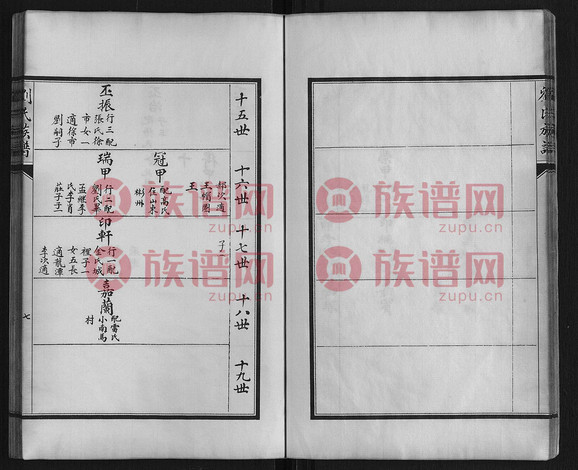 十五世
十六世
十七世
十八世
十九世
郝次適
王帽圈
王
子一
冠甲
配高氏
住山東
彬州
丕振
行三配
張氏徐
市女一
適徐市
劉嗣子
瑞甲
行二配
劉氏華
孟繼李
氏李肖
莊子一
印軒
行一配
金氏城
裡子一
女五長
適龍潭
李次適
嘉蘭
配雷氏
小南馬
村
劉氏族譜
七
族谱网
zupu.cn
族谱网
zupu.cn
族谱网
zupu.cn
族谱网
zupu.cn